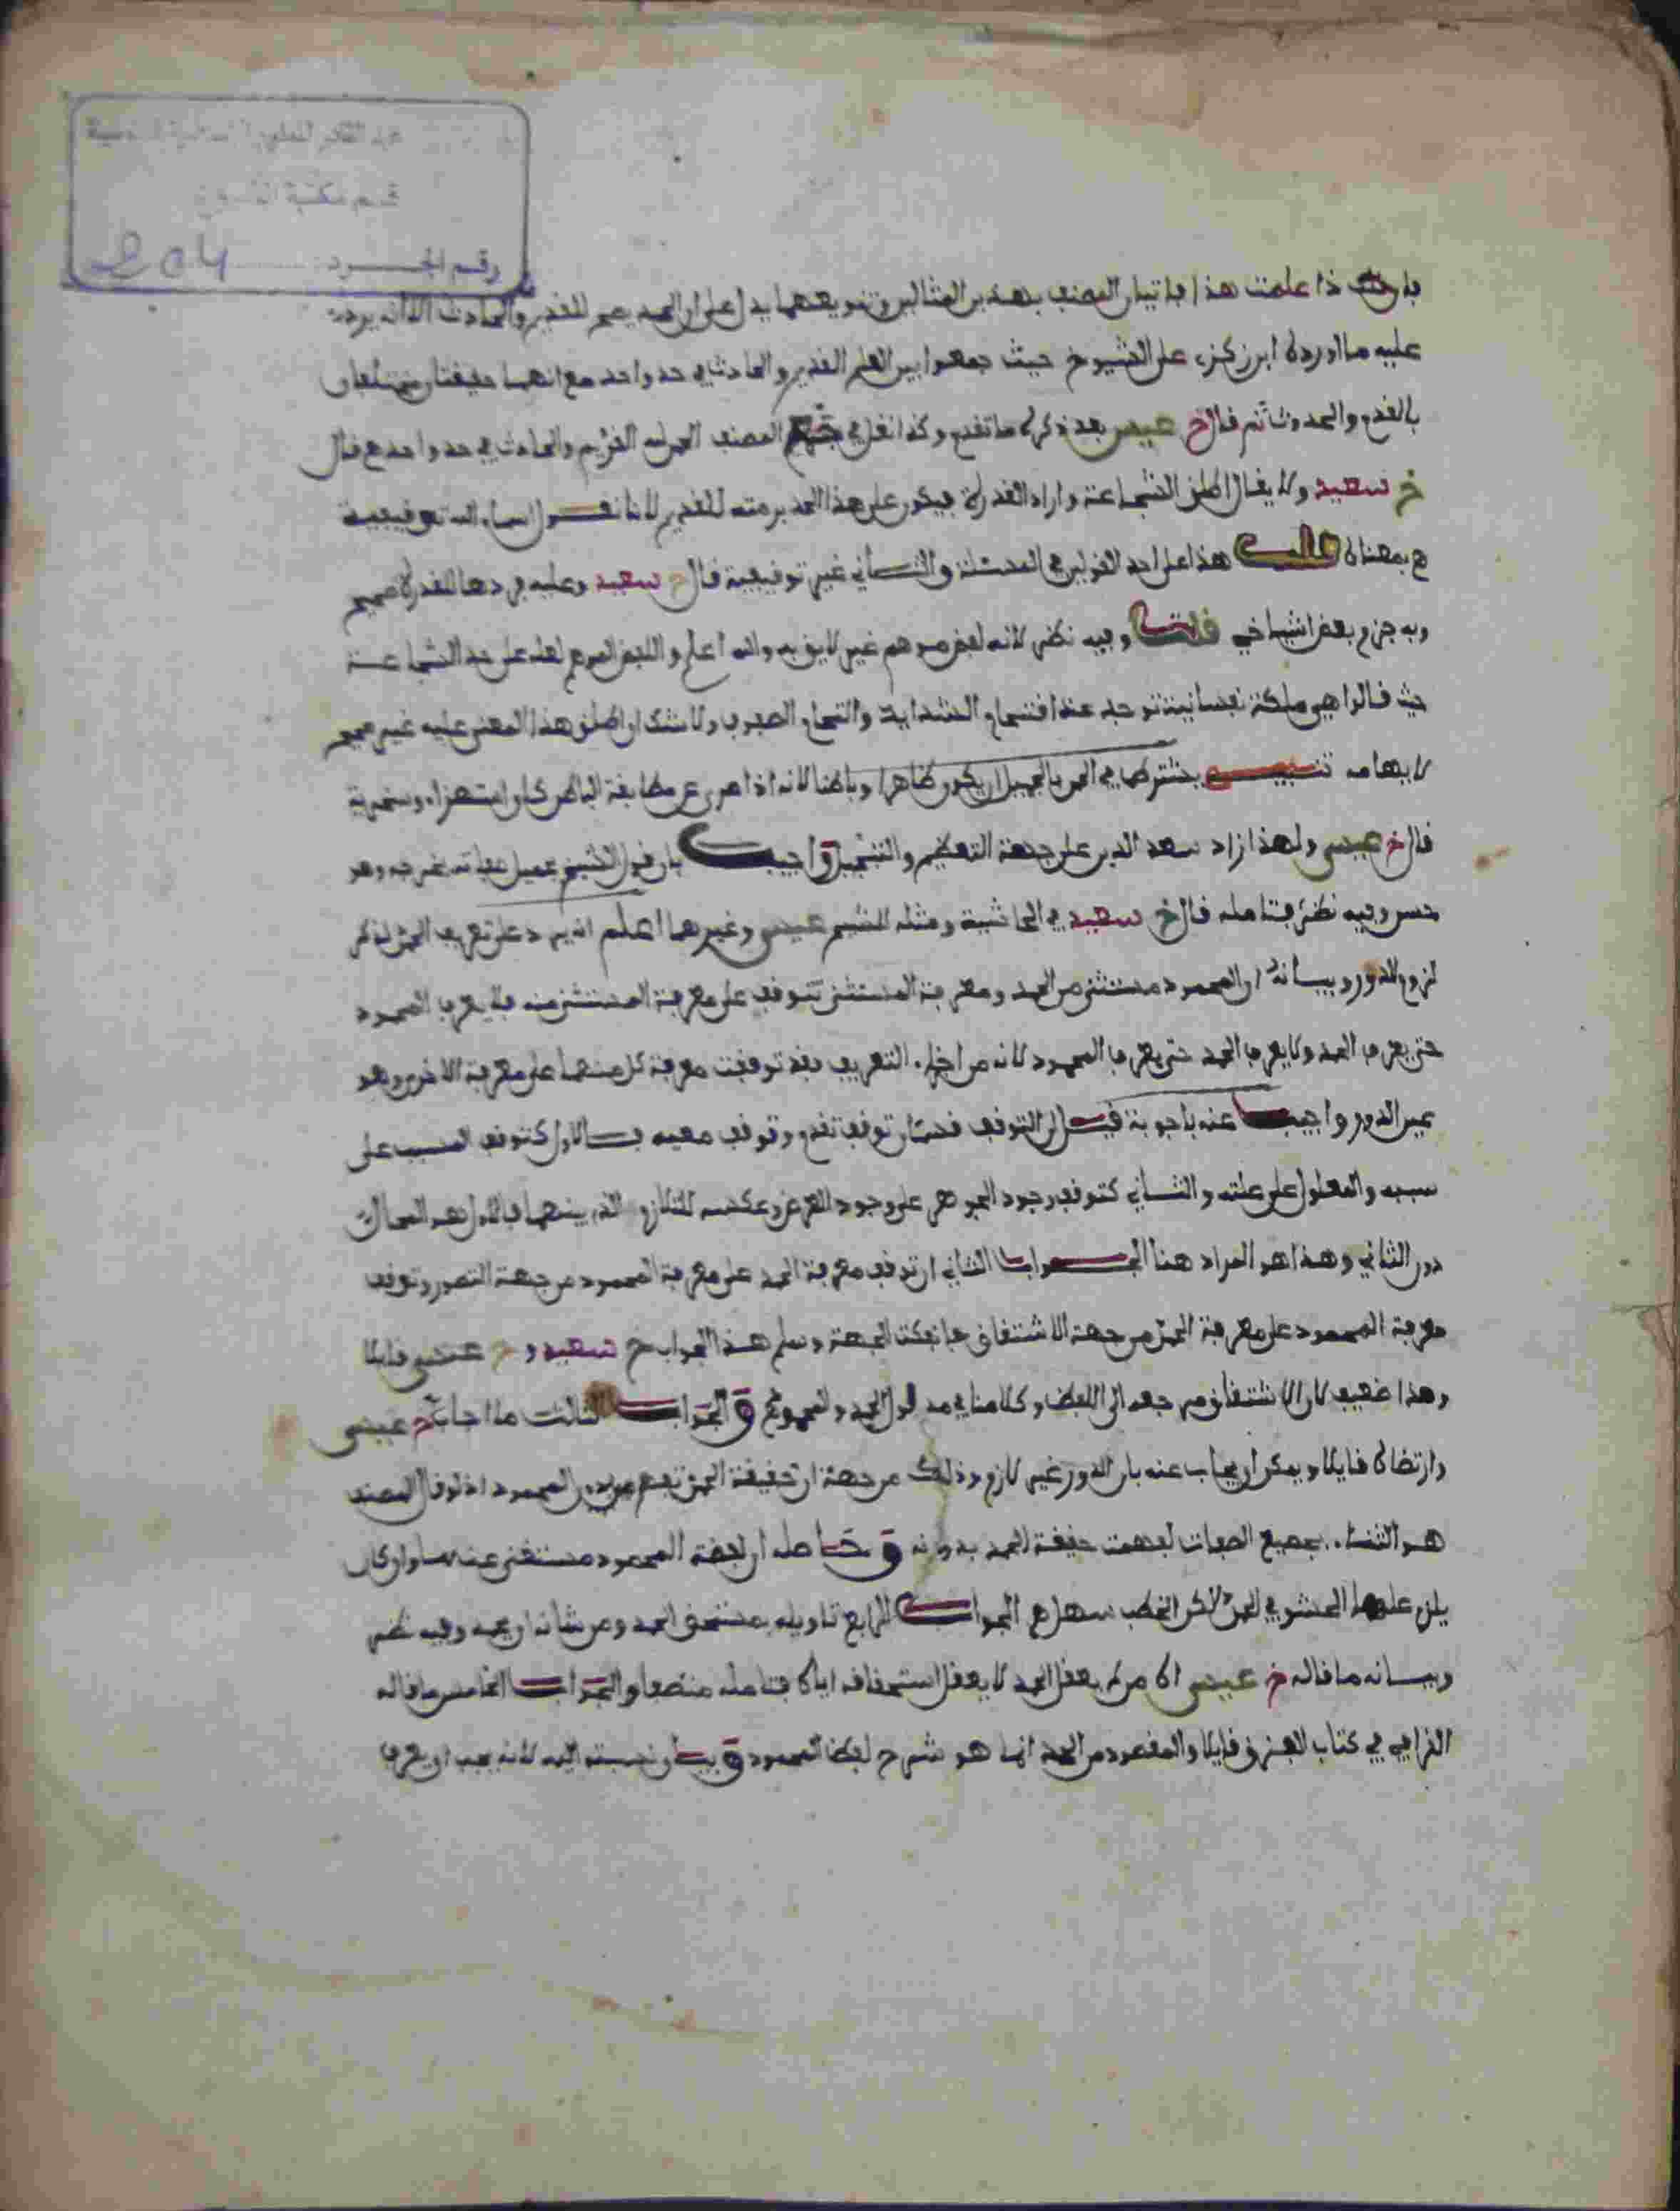 عبد القادر للعلوم الإسلامية
قسم مكتبة
رقم الجرد 204
ذا علمت هذا فاتيان المصنف بهذين المثالين وتنويعهما يدل على ان الحمد يعم القديم والحادث الا انه يرد
عليه ما اورده ابن زكري على الشيوخ حيث جمعوا بين العلم القديم والحادث في حد واحد مع انهما حقيقتان مختلفتان
بالقدم والحدوث ثم قال خ عيسى بعد ذكره ما تقدم وكذا نقل في المصنف القديم والحادث في حد واحد مع قال
خ سعيد ولا يقال اطلق الشجاعة واراد القدرة فيكون على هذا الحد برمته للقديم لانا نقول اسماء الله توقيفية
هذا على احد القولين في المسئلة والثاني غير توقيفية قال خ سعيد وعليه فردها للقدرة صحيح
وبه جزم بعض اشياخي قلت وفيه نظر لانه لفظ موهم غير لايق به والله اعلم واللفظ الموهم لعله على حد الشجاعة
حيث قالوا هي ملكة نفسانية توجد عند اقتحام الشدايد والتحام الحروب ولا شك ان اطلاق هذا المعنى عليه غير صحيح
لايهامه تنبيه يشترط في الحمد بالجميل ان يكون ظاهرا وباطنا لانه اذا عري عن مطابقة الباطن كان استهزاء وسخرية
قال خ عيسى ولهذا زاد سعد الدين على جهة التعظيم والتبجيل واجيب بان قول الشيخ بجميل صفاته يخرجه وهو
حسن وفيه نظر فتامله قال خ سعيد في الحاشية ومثله للشيخ عيسى وغيرهما اعلم انه يرد على تعريف الحمد لذكر
لزوم الدور وبيانه ان المحمود مشتق من الحمد ومعرفة المشتق تتوقف على معرفة المشتق منه فلا يعرف المحمود
حتى يعرف الحمد ولا يعرف الحمد حتى يعرف المحمود لانه من اجزاء التعريف فقد توقفت معرفة كل منهما على معرفة الاخر وهو
عين الدور واجيب عنه باجوبة قيل ان التوقف قسمان توقف تقدم وتوقف معية فالاول كتوقف المسبب على
سببه والمعلول على علته والثاني كتوقف وجود الجوهر على وجود العرض وعكسه للتلازم الذي بينهما فالاول هو المحال
دون الثاني وهذا هو المراد هنا الجواب الثاني ان توقف معرفة الحمد على معرفة المحمود من جهة التصور وتوقف
معرفة المحمود على معرفة الحمد من جهة الاشتقاق فانفكت الجهة وسلم هذا الجواب خ سعيد وخ عيسى قايلا
وهذا ضعيف لان الاشتقاق مرجعه الى اللفظ وكلامنا في مدلول الحمد والجواب الثالث ما اجاب خ عيسى
وارتضاه قايلا ويمكن ان يجاب عنه بان الدور غير لازم وذلك من جهة ان حقيقة الحمد تفهم من دون المحمود اذ لو قال المصنف
هو الثناء بجميع الصفات لفهمت حقيقة الحمد بدونه وحاصله ان لفظة المحمود مستغنى عنها وان كان
يلزم عليه الحشو في الحد لاكن الخطب سهل الجواب الرابع تاويله بمستحق الحمد ومن شانه ان يحمد وفيه نظر
وبيانه ما قاله خ عيسى ان من لم يعقل الحمد لا يعقل استحقاقه اياه فتامله منصفا والجواب الخامس ما قاله
القرافي في كتاب الفروق قايلا والمقصود من الحد انما هو شرح لفظ المحمود وبيان نسبته اليه لانه يجب ان يعرف